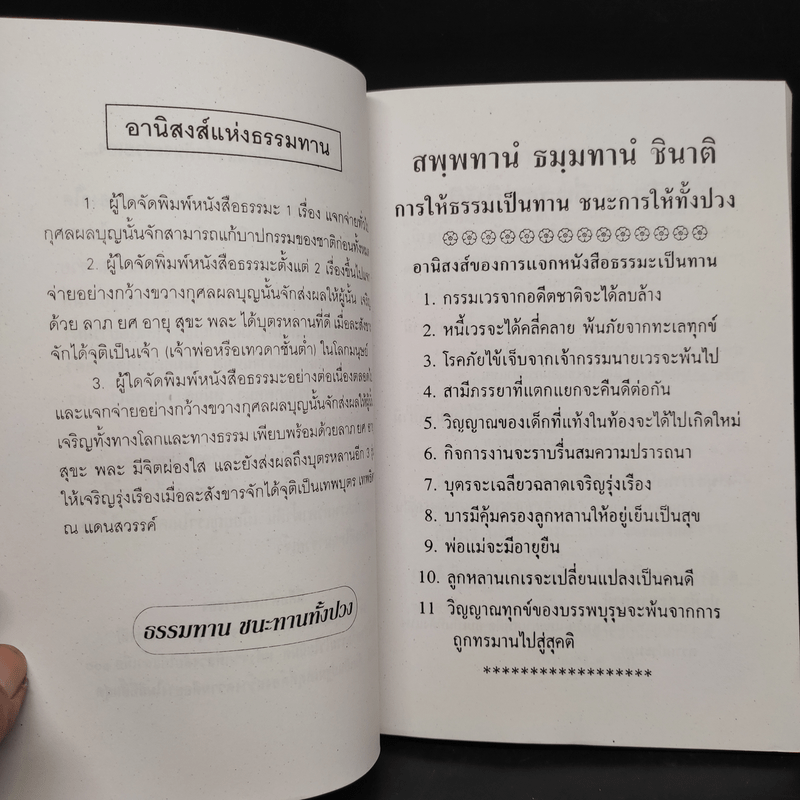 อานิสงส์แห่งธรรมทาน
1. ผู้ใดจัดพิมพ์หนังสือธรรมะ 1 เรื่อง แจกจ่ายทั่วไป
กุศลผลบุญนั้นจักสามารถแก้บาปกรรมของชาติก่อน
2. ผู้ใดจัดพิมพ์หนังสือธรรมะตั้งแต่ 2 เรื่องขึ้นไป
จ่ายอย่างกว้างขวางกุศลผลบุญนั้นจักส่งผลให้ผู้นั้น เจริญ
ด้วย ลาภ ยศ อายุ สุขะ พละ ได้บุตรหลานที่ดี เมื่อละสังขาร
จักได้จุติเป็นเจ้า (เจ้าพ่อหรือเทวดาชั้นต่ำ) ในโลกมนุษย์
3. ผู้ใดจัดพิมพ์หนังสือธรรมะอย่างต่อเนื่อง
และแจกจ่ายอย่างกว้างขวางกุศลผลบุญนั้นจักส่งผล
เจริญทั้งทางโลกและทางธรรม เพียบพร้อมด้วยลาภ ยศ
สุขะ พละ มีจิตผ่องใส และยังส่งผลถึงบุตรหลานอีก 3
ให้เจริญรุ่งเรืองเมื่อละสังขารจักได้จุติเป็นเทพบุตร
ณ แดนสวรรค์
ธรรมทาน ชนะทานทั้งปวง
สพฺพทานํ ธมฺมทานํ ชินาติ
การให้ธรรมเป็นทาน ชนะการให้ทั้งปวง
อานิสงส์ของการแจกหนังสือธรรมะเป็นทาน
1. กรรมเวรจากอดีตชาติจะได้ลบล้าง
2. หนี้เวรจะได้คลี่คลาย พ้นภัยจากทะเลทุกข์
3. โรคภัยไข้เจ็บจากเจ้ากรรมนายเวรจะพ้นไป
4. สามีภรรยาที่แตกแยกจะคืนดีต่อกัน
5. วิญญาณของเด็กที่แท้งในท้องจะได้ไปเกิดใหม่
6. กิจการงานจะราบรื่นสมความปรารถนา
7. บุตรจะเฉลียวฉลาดเจริญรุ่งเรือง
8. บารมีคุ้มครองลูกหลานให้อยู่เย็นเป็นสุข
9. พ่อแม่จะมีอายุยืน
10. ลูกหลานเกเรจะเปลี่ยนแปลงเป็นคนดี
11 วิญญาณทุกข์ของบรรพบุรุษจะพ้นจากการ
ถูกทรมานไปสู่สุคติ
******************